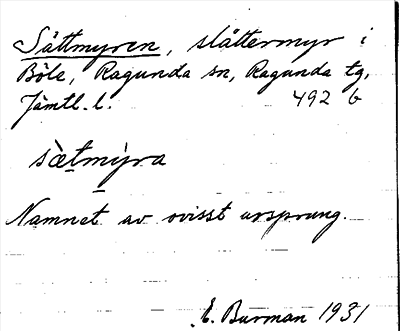 Såttmyren, slåttermyr i
Böle, Ragunda sn, Ragunda tg,
Jämtl. l. 492 b
sæ̀tmỳra
Namnet av ovisst ursprung.
E. Burman 1931